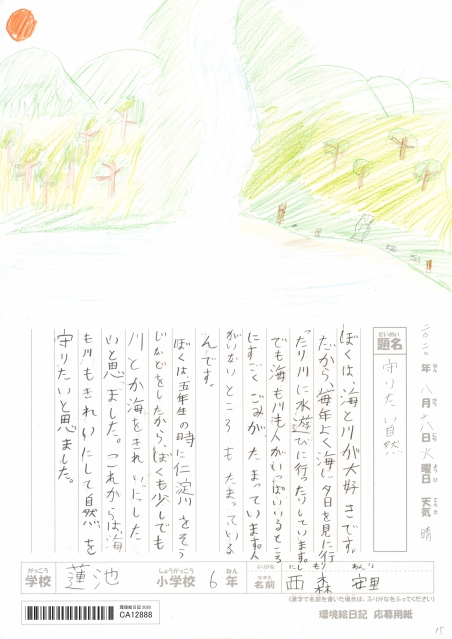 二〇二〇年 八月 十八日 火曜日 天気 晴
だいめい
題名 守りたい自然
ぼくは、海と川が大好きです。
だから、毎年よく海に夕日を見に行
ったり川に水遊びに行ったりしています。
でも海も川も人がいっぱいいるところ
にすごくごみがたまっています。人
がいないところもたまっている
んです。
ぼくは、五年生の時に仁淀川をそう
じなどをしたから、ぼくも少しでも
川とか海をきれいにした
いと思いました。これからは、海
も川もきれいにして自然を
守りたいと思いました。
がっこう しょうがっこう ねん ふりがな にし もり
学校 蓮池 小学校 6年 名前 西森
(漢字で名前を書いた場合は、ふりがなをふってください)
環境絵日記2020
CA12888
環境絵日記 応募用紙
15